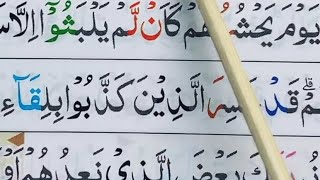 يَوْمَ يَحْشُرُهُمْ كَاَنْ لَّمْ يَلْبَثُوْۤا اِلَّا سَ
مْ ؕ قَدْ خَسِرَ الَّذِيْنَ كَذَّبُوْا بِلِقَآءِ
بَعْضَ الَّذِيْ نَعِدُهُمْ اَوْ